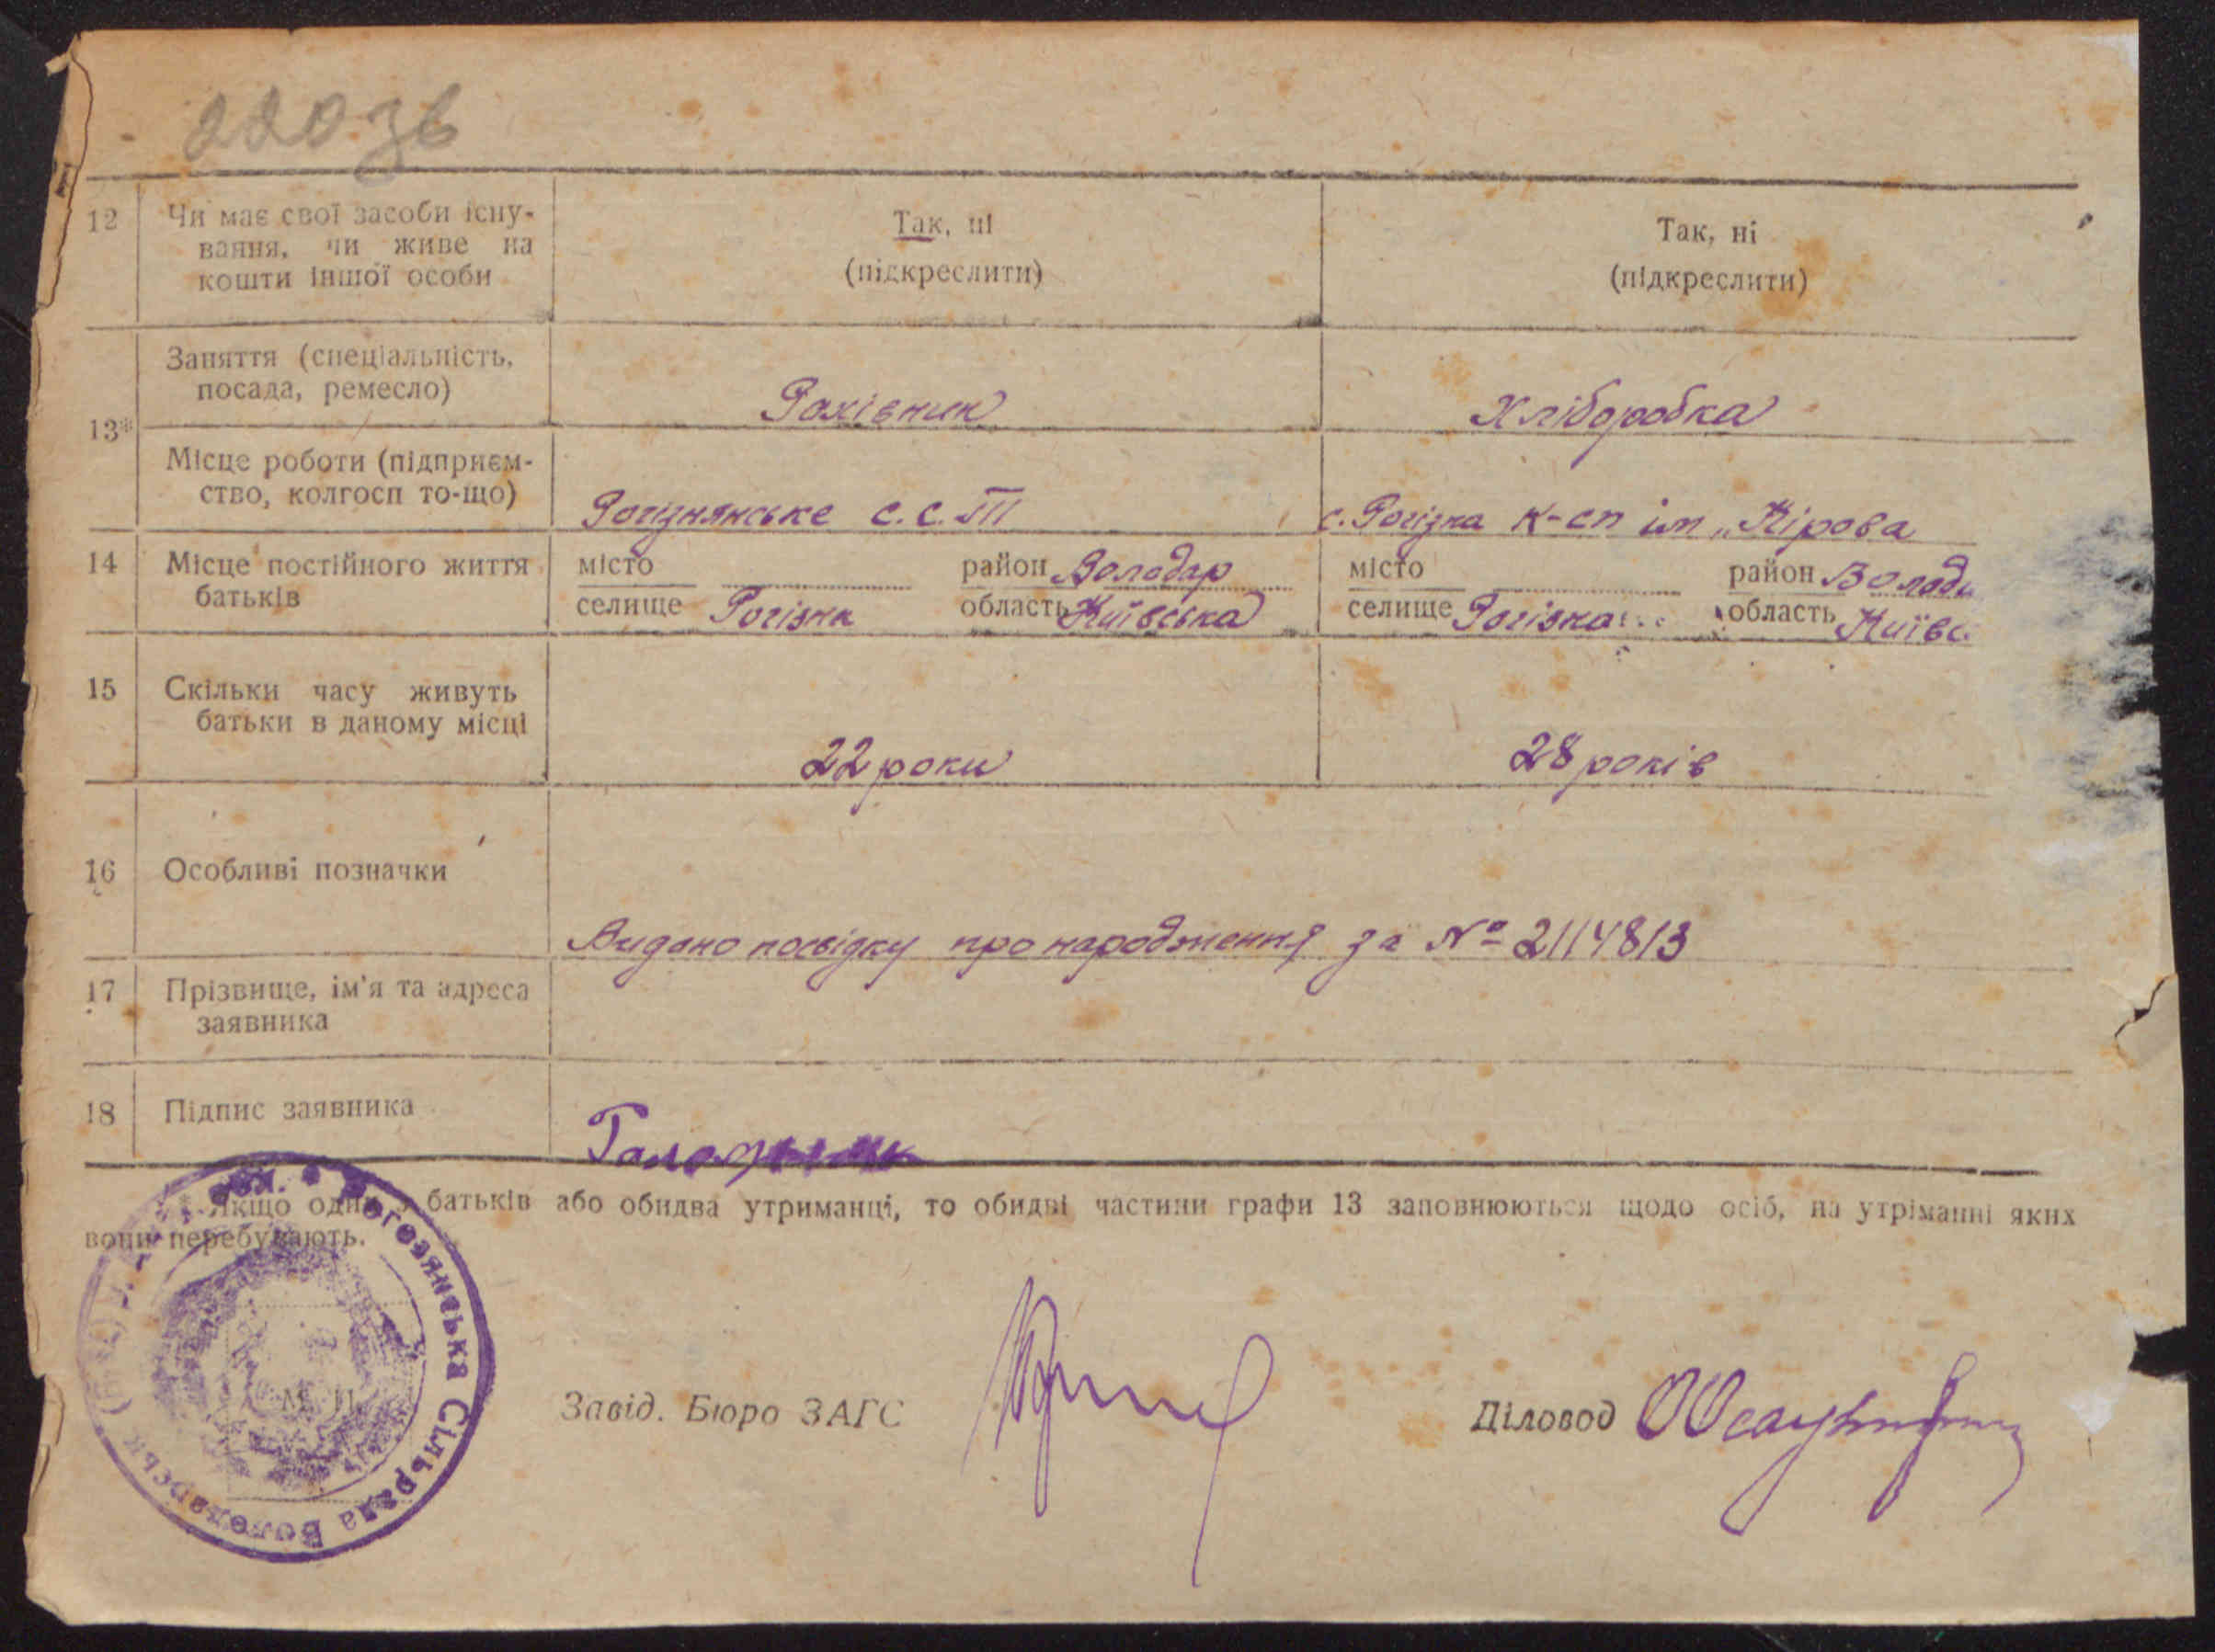 220 зв
12 Чи має свої засоби існу-
вання, чи живе на
кошти іншої особи
Так, ні
(підкреслити)
Так, ні
(підкреслити)
13*
Заняття (спеціальність,
посада, ремесло)
Рахівник
Хліборобка
Місце роботи (підприєм-
ство, колгосп то-що)
Рогізнянське с.с. ТІІ
с. Рогізна к-сп ім „Кірова
14 Місце постійного життя
батьків
місто район Володар
селище Рогізна область Київська
місто район Волода
селище Рогізна область Київс.
15 Скільки часу живуть
батьки в даному місці
22 роки
28 років
16 Особливі позначки
Видано посвідку про народження за № 2114813
17 Прізвище, ім'я та адреса
заявника
18 Підпис заявника
* Якщо один з батьків або обидва утриманці, то обидві частини графи 13 заповнюються щодо осіб, на утріманні яких
вони перебувають.
Рогозянська Сільрада Володарськ
М. П.
Завід. Бюро ЗАГС
Діловод